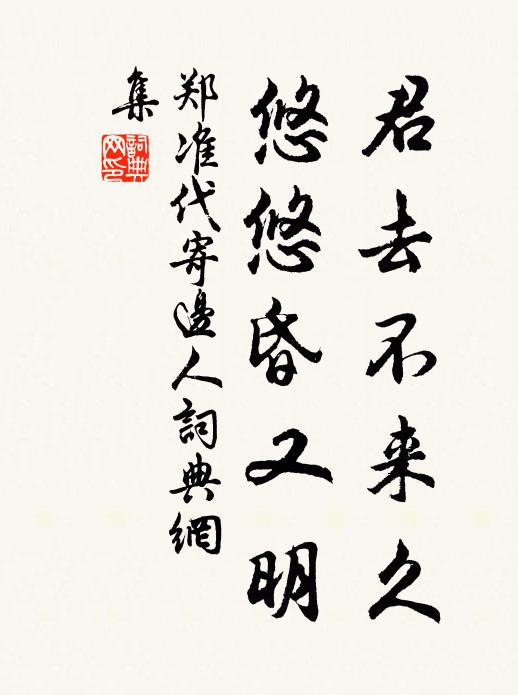 君去不来久
悠悠昏又明
郑准代寄邊人詞典網
集
詞典
网印